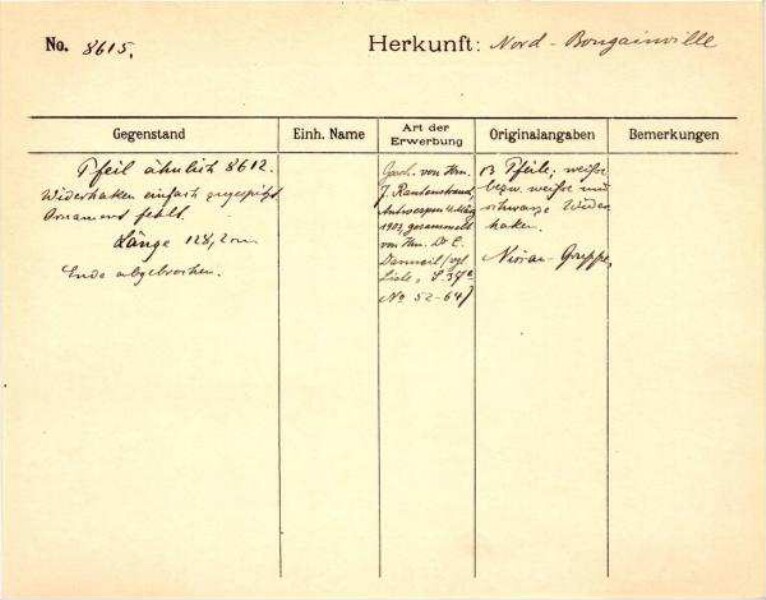 No. 8615. Herkunft: Nord-Bougainville
Gegenstand Einh. Name Art der Erwerbung Originalangaben Bemerkungen
Pfeil ähnlich 8612.
Widerhaken einfach zugespitzt
Ornament fehlt.
Länge 128,2 cm.
Ende abgebrochen.
Gesch. von Hrn.
J. 
Antwerpen März
1903, gesammelt
von Hrn. Dr. E.
(vgl.
Liste, S. 37
No 52-64)
13 Pfeile; weiße
bezw. weiße und
schwarze Wider
haken.
Nissan-Gruppe,